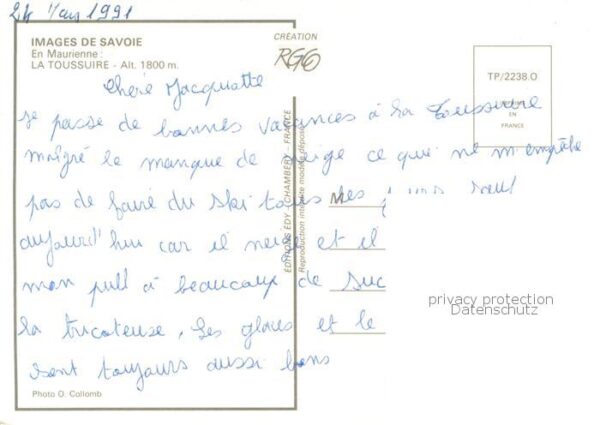 24 Mars 1991
IMAGES DE SAVOIE
En Maurienne :
LA TOUSSUIRE - Alt. 1800 m.
CRÉATION
RGO
TP/2238.O
EN
FRANCE
ÉDITIONS EDY - CHAMBÉRY - FRANCE
Reproduction interdite modèle déposé
Chère Jacquotte
Je passe de bonnes vacances à la toussuire
malgré le manque de neige ce qui ne m'empêche
pas de faire du ski tous les jours sauf
aujourd'hui car il neige et il
mon pull à beaucoup de suc
la tricoteuse. Les glaces et le
sont toujours aussi bons
privacy protection
Datenschutz
Photo O. Collomb